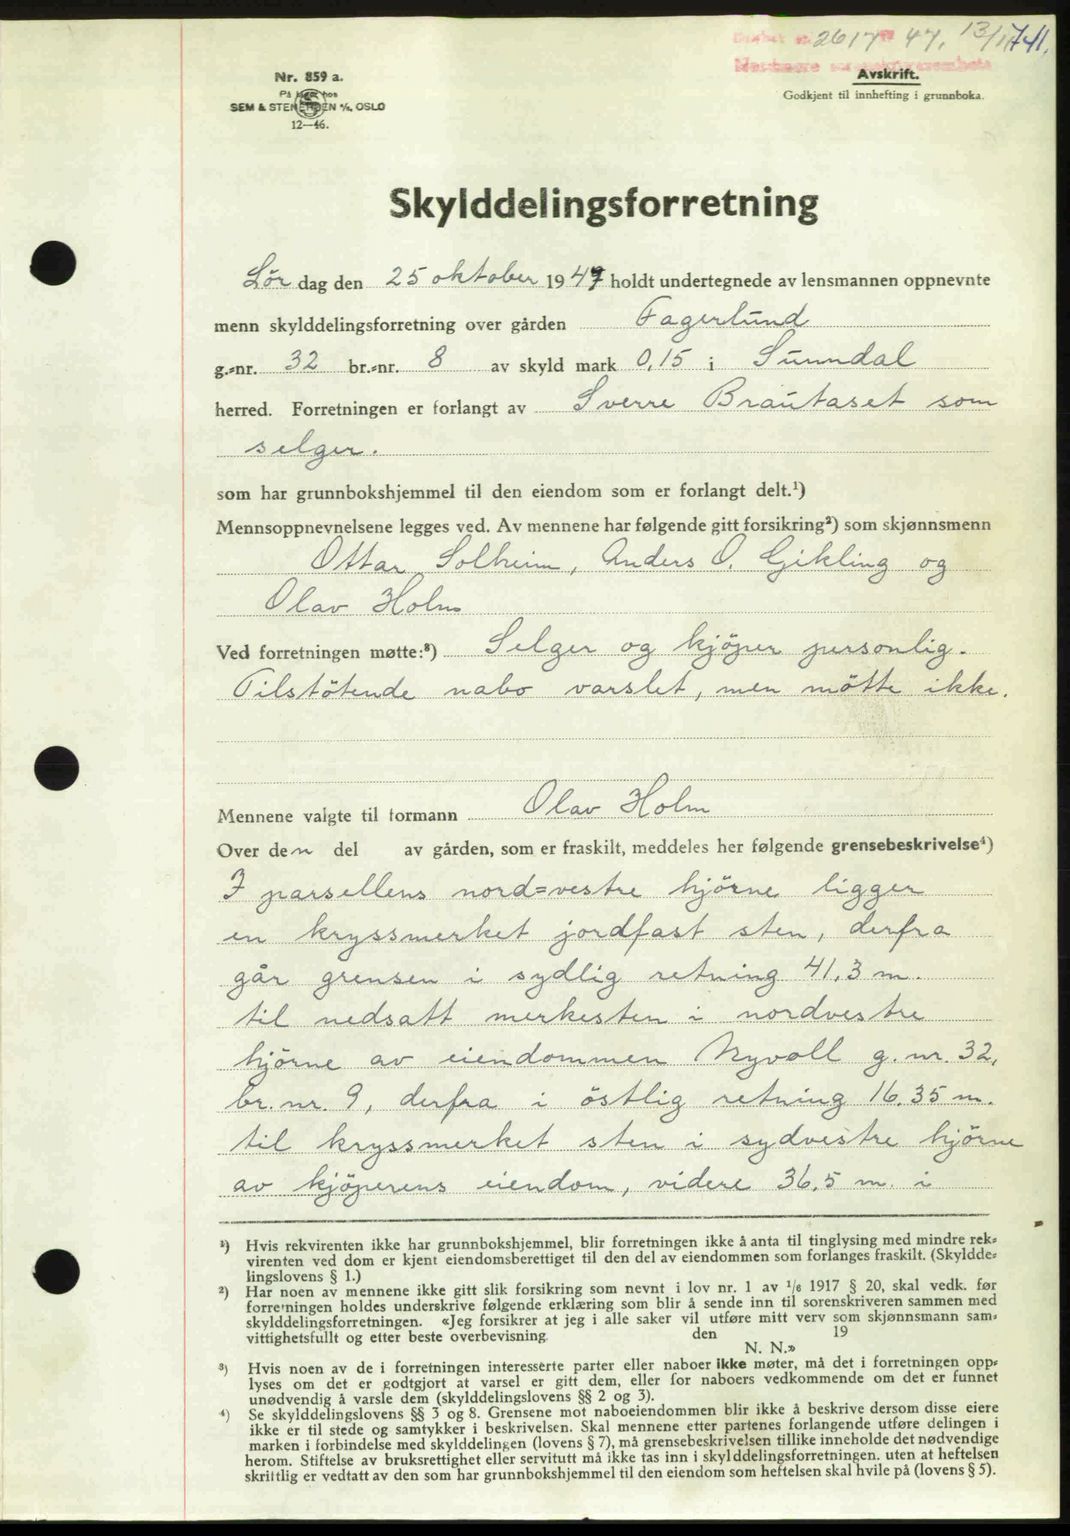 2617 47, 13/11 741.
Nr. 859 a.
På lager hos
SEM & STENERSEN A/S, OSLO
12—46.
Avskrift.
Godkjent til innhefting i grunnboka.
Skylddelingsforretning
Lördag den 25 oktober 1947 holdt undertegnede av lensmannen oppnevnte
menn skylddelingsforretning over gården Fagerlund
g.-nr. 32 br.-nr. 8 av skyld mark 0,15 i Sunndal
herred. Forretningen er forlangt av Sverre Brautaset som
selger.
som har grunnbokshjemmel til den eiendom som er forlangt delt.¹)
Mennsoppnevnelsene legges ved. Av mennene har følgende gitt forsikring²) som skjønnsmenn
Ottar Solheim, Anders O. Gikling og
Olav Holm
Ved forretningen møtte:³) Selger og kjöper personlig.
Tilstötende nabo varslet, men mötte ikke.
Mennene valgte til formann Olav Holm
Over den del av gården, som er fraskilt, meddeles her følgende grensebeskrivelse⁴)
I parsellens nord=vestre hjörne ligger
en kryssmerket jordfast sten, derfra
går grensen i sydlig retning 41,3 m.
til nedsatt merkesten i nordvestre
hjörne av eiendommen Nyvoll g. nr. 32,
br. nr. 9, derfra i östlig retning 16.35 m.
til kryssmerket sten i sydvestre hjörne
av kjöperens eiendom, videre 36,5 m. i
¹) Hvis rekvirenten ikke har grunnbokshjemmel, blir forretningen ikke å anta til tinglysing med mindre rek-
virenten ved dom er kjent eiendomsberettiget til den del av eiendommen som forlanges fraskilt. (Skyldde-
lingslovens § 1.)
²) Har noen av mennene ikke gitt slik forsikring som nevnt i lov nr. 1 av 1/6 1917 § 20, skal vedk. før
forretningen holdes underskrive følgende erklæring som blir å sende inn til sorenskriveren sammen med
skylddelingsforretningen. «Jeg forsikrer at jeg i alle saker vil utføre mitt verv som skjønnsmann sam-
vittighetsfullt og etter beste overbevisning den 19
N. N.»
³) Hvis noen av de i forretningen interesserte parter eller naboer ikke møter, må det i forretningen opp-
lyses om det er godtgjort at varsel er gitt dem, eller for naboers vedkommende om det er funnet
unødvendig å varsle dem (skylddelingslovens §§ 2 og 3).
⁴) Se skylddelingslovens §§ 3 og 8. Grensene mot naboeiendommen blir ikke å beskrive dersom disse eiere
ikke er til stede og samtykker i beskrivelsen. Skal mennene etter partenes forlangende utføre delingen i
marken i forbindelse med skylddelingen (lovens § 7), må grensebeskrivelsen tillike inneholde det nødvendige
herom. Stiftelse av bruksrettighet eller servitutt må ikke tas inn i skylddelingsforretningen. uten at heftelsen
skriftlig er vedtatt av den som har grunnbokshjemmel til den eiendom som heftelsen skal hvile på (lovens § 5).